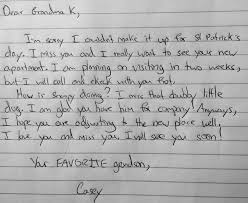 Dear Grandma K,
I'm sorry I couldn't make it up for St Patrick's
day. I miss you and I really want to see your new
apartment. I am planning on visiting in two weeks,
but I will call and check with you first.
How is doing? I miss that chubby little
dog. I am glad you have him for company! Anyways,
I hope you are adjusting to the new place well.
I love you and miss you. I will see you soon!
Your FAVORITE grandson,
Casey